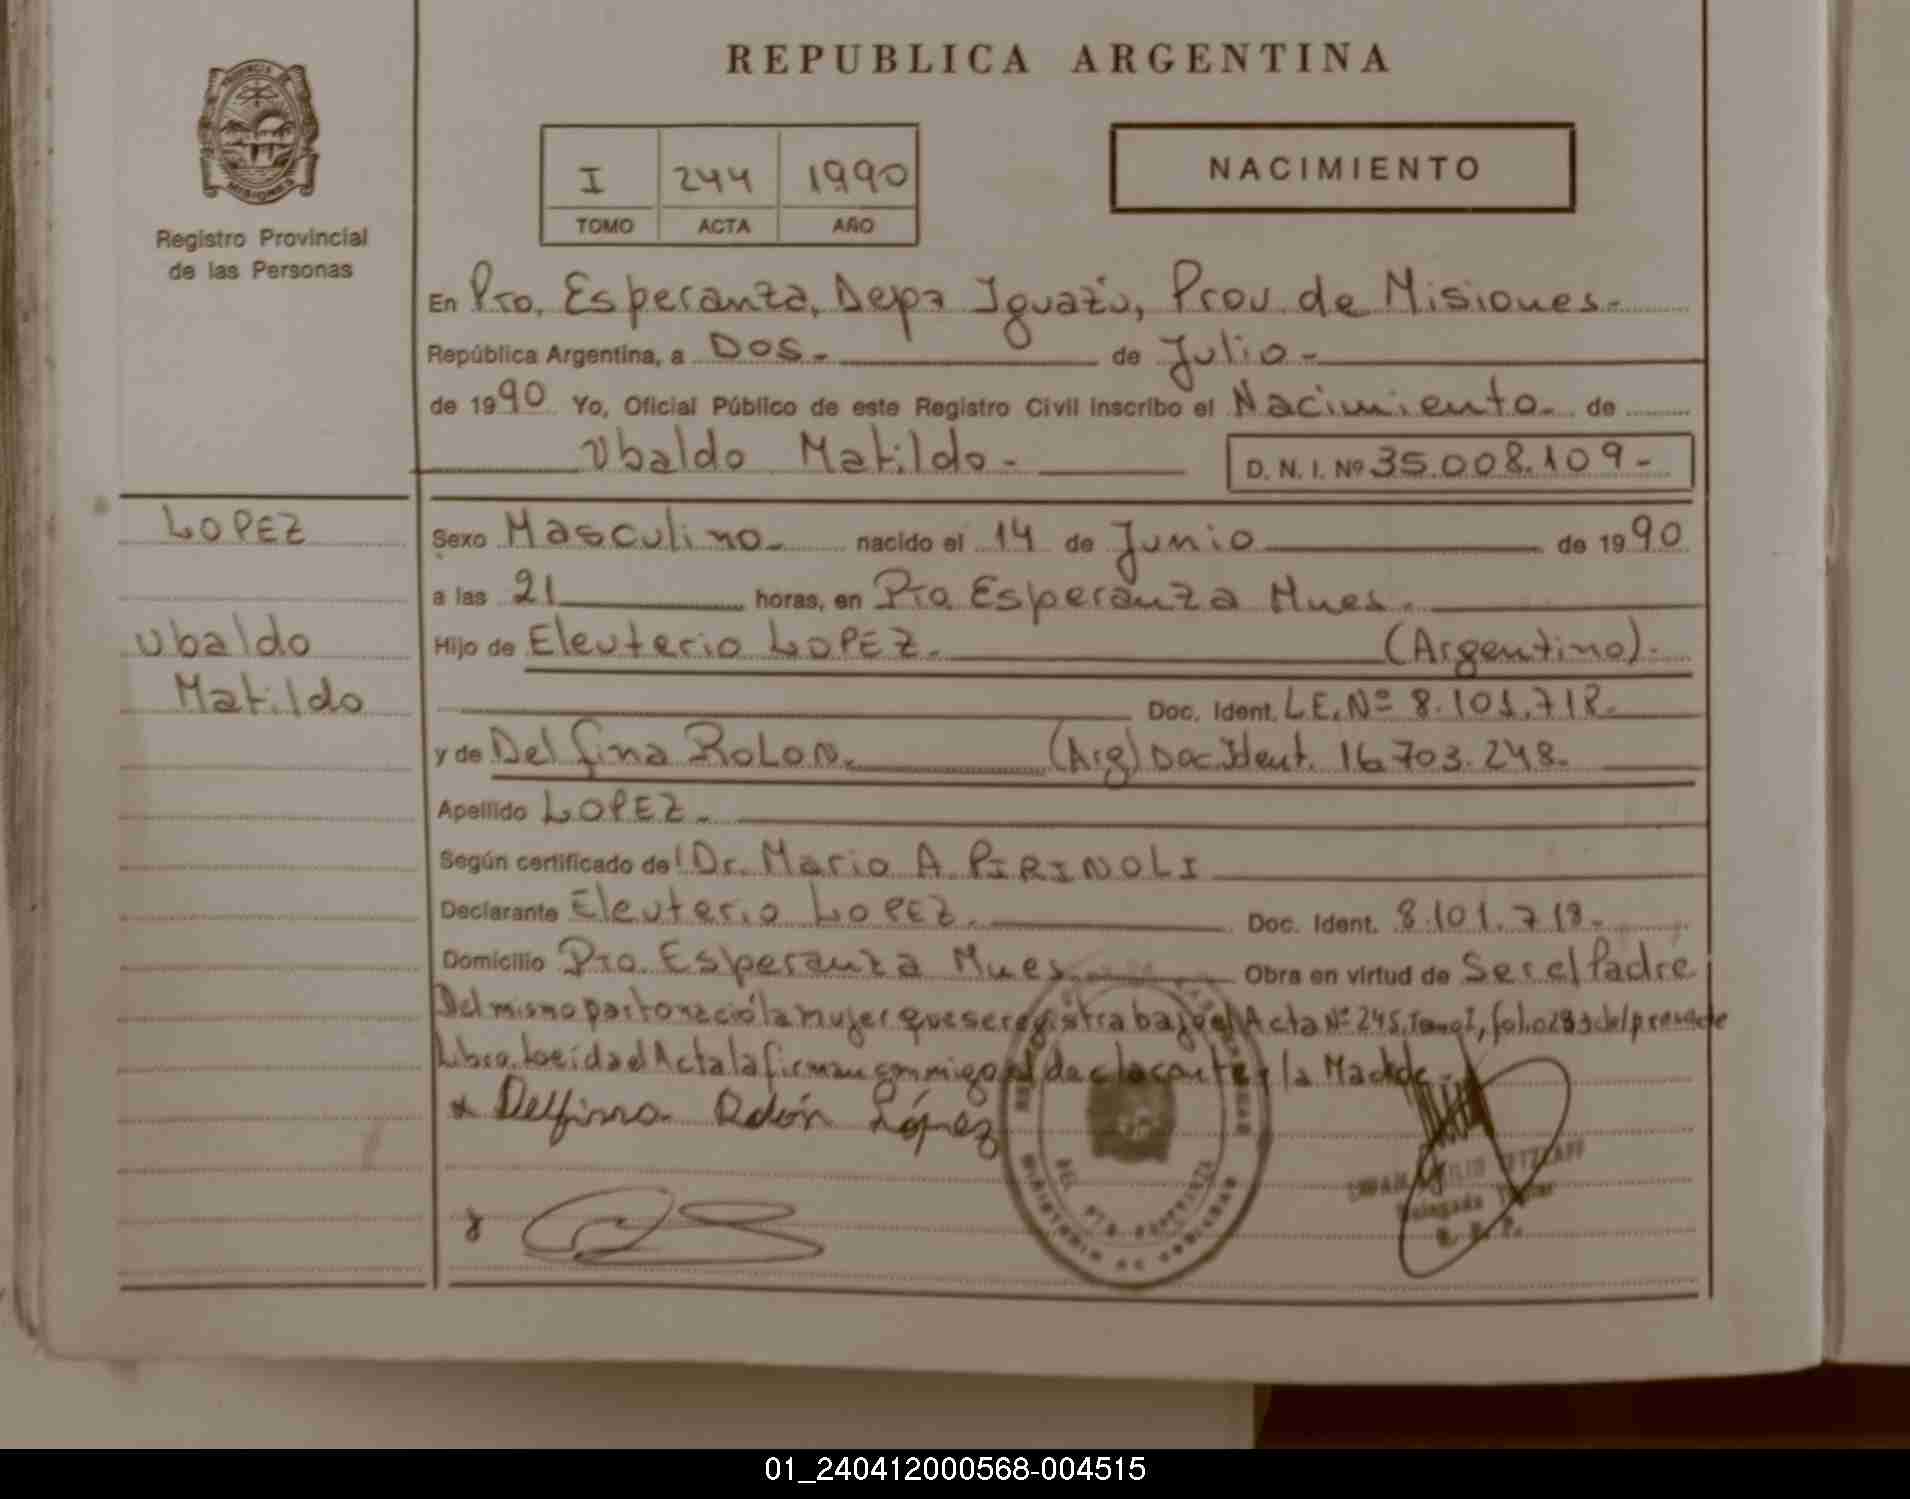 REPUBLICA ARGENTINA
PROVINCIA DE
MISIONES
Registro Provincial
de las Personas
I 244 1990
TOMO ACTA AÑO
NACIMIENTO
En Pto. Esperanza, Depa Iguazú, Prov. de Misiones.-
República Argentina, a Dos.- de Julio.-
de 1990 Yo, Oficial Público de este Registro Civil inscribo el Nacimiento. de
Ubaldo Matildo.- D. N. I. Nº 35.008.109-
LOPEZ
Ubaldo
Matildo
Sexo Masculino. nacido el 14 de Junio de 1990
a las 21 horas, en Pto. Esperanza Mnes.
Hijo de Eleuterio LOPEZ. (Argentino).-
Doc. Ident. L.E. Nº 8.101.718.
y de Delfina ROLON. (Arg) Doc. Ident. 16.703.248.
Apellido LOPEZ.
Según certificado del Dr. Mario A. PIRINOLI
Declarante Eleuterio LOPEZ. Doc. Ident. 8.101.718.-
Domicilio Pto. Esperanza Mnes. Obra en virtud de Ser el Padre
Del mismo parto nació la mujer que se registra bajo el Acta Nº 245, Tomo I, folio 283 del presente
Libro. Leida el Acta la firman conmigo el declarante y la Madre.-
x Delfina Rolón López
DEL. PTO. ESPERANZA
MINISTERIO DE GOBIERNO
Delegada Titular
R. P. P.
01_240412000568-004515